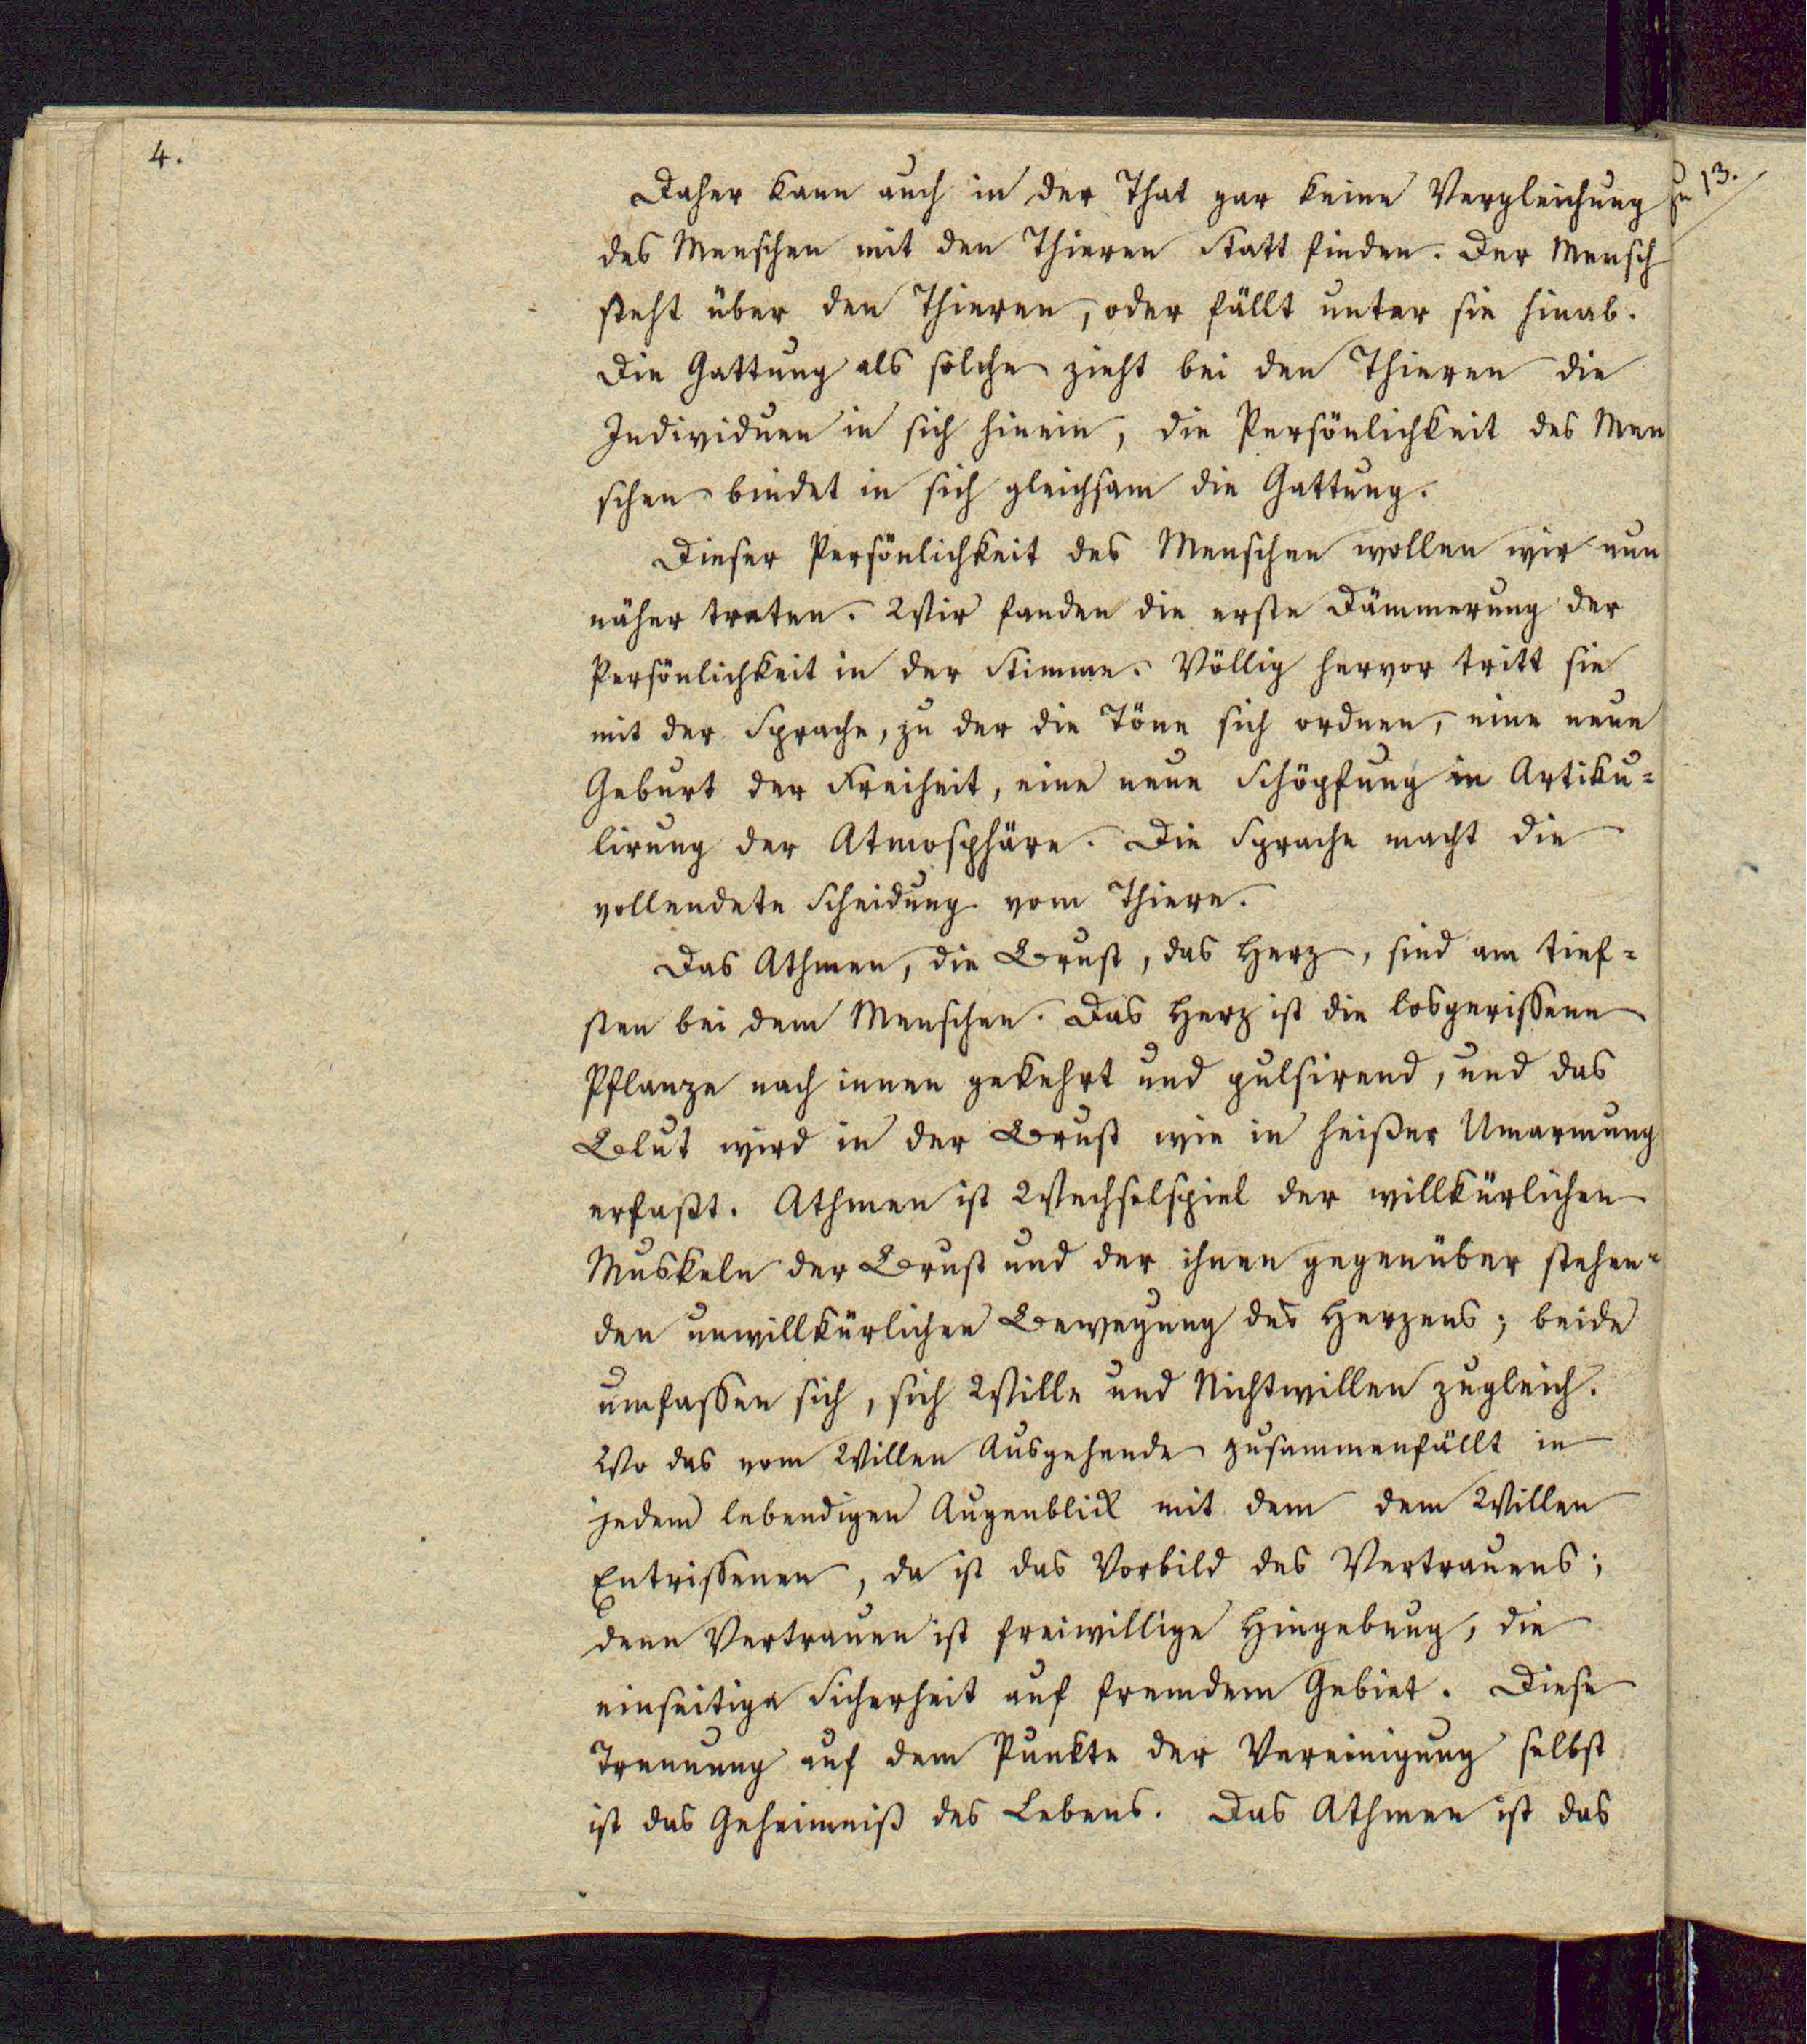 4.
zu 13.
Daher kann auch in der That gar keine Vergleichung
des Menschen mit den Thieren Statt finden. Der Mensch
steht über den Thieren, oder fällt unter sie hinab.
Die Gattung als solche zieht bei den Thieren die
Individuen in sich hinein, die Persönlichkeit des Men
schen bindet in sich gleichsam die Gattung.
Dieser Persönlichkeit des Menschen wollen wir nun
näher treten. Wir fanden die erste Dämmerung der
Persönlichkeit in der Stimme. Völlig hervor tritt sie
mit der Sprache, zu der die Töne sich ordnen, eine neue
Geburt der Freiheit, eine neue Schöpfung in Artiku=
lirung der Atmosphäre. Die Sprache macht die
vollendete Scheidung vom Thiere.
Das Athmen, die Brust, das Herz, sind am tief=
sten bei dem Menschen. Das Herz ist die losgerissene
Pflanze nach innen gekehrt und pulsirend, und das
Blut wird in der Brust wie in heißer Umarmung
erfaßt. Athmen ist Wechselspiel der willkürlichen
Muskeln der Brust und der ihnen gegenüber stehen=
den unwillkürlichen Bewegung des Herzens; beide
umfassen sich, sich Wille und Nichtwillen zugleich.
Wo das vom Willen Ausgehende zusammenfällt in
jedem lebendigen Augenblick mit dem dem Willen
Entrissenen, da ist das Vorbild des Vertrauens;
denn Vertrauen ist freiwillige Hingebung, die
einseitige Sicherheit auf fremdem Gebiet. Diese
Trennung auf dem Punkte der Vereinigung selbst
ist das Geheimniß des Lebens. Das Athmen ist das